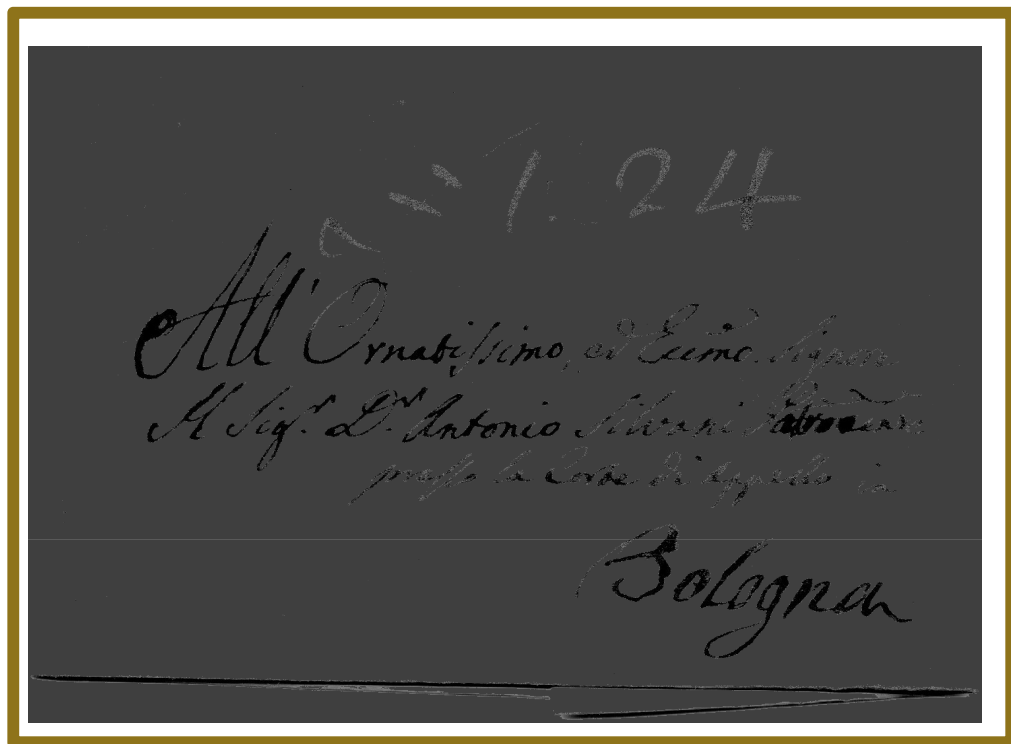 1. 24
All' Ornatissimo, ed Eccmo. Signore
Il Sigr. Dr. Antonio Silvani
presso la Corte di Appello in
Bologna